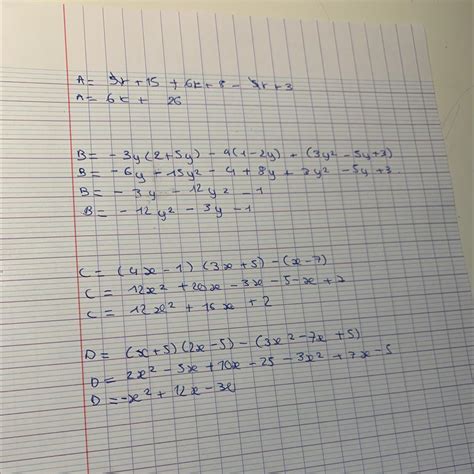 A = 3x + 15 + 6x + 8 - 3x + 3
A = 6x + 26
B = - 3y (2 + 5y) - 4 (1 - 2y) + (3y² - 5y + 3)
B = - 6y - 15y² - 4 + 8y + 3y² - 5y + 3
B = - 3y - 12y² - 1
B = - 12y² - 3y - 1
C = (4x - 1) (3x + 5) - (x - 7)
C = 12x² + 20x - 3x - 5 - x + 7
C = 12x² + 16x + 2
D = (x + 5) (2x - 5) - (3x² - 7x + 5)
D = 2x² - 5x + 10x - 25 - 3x² + 7x - 5
D = -x² + 12x - 30